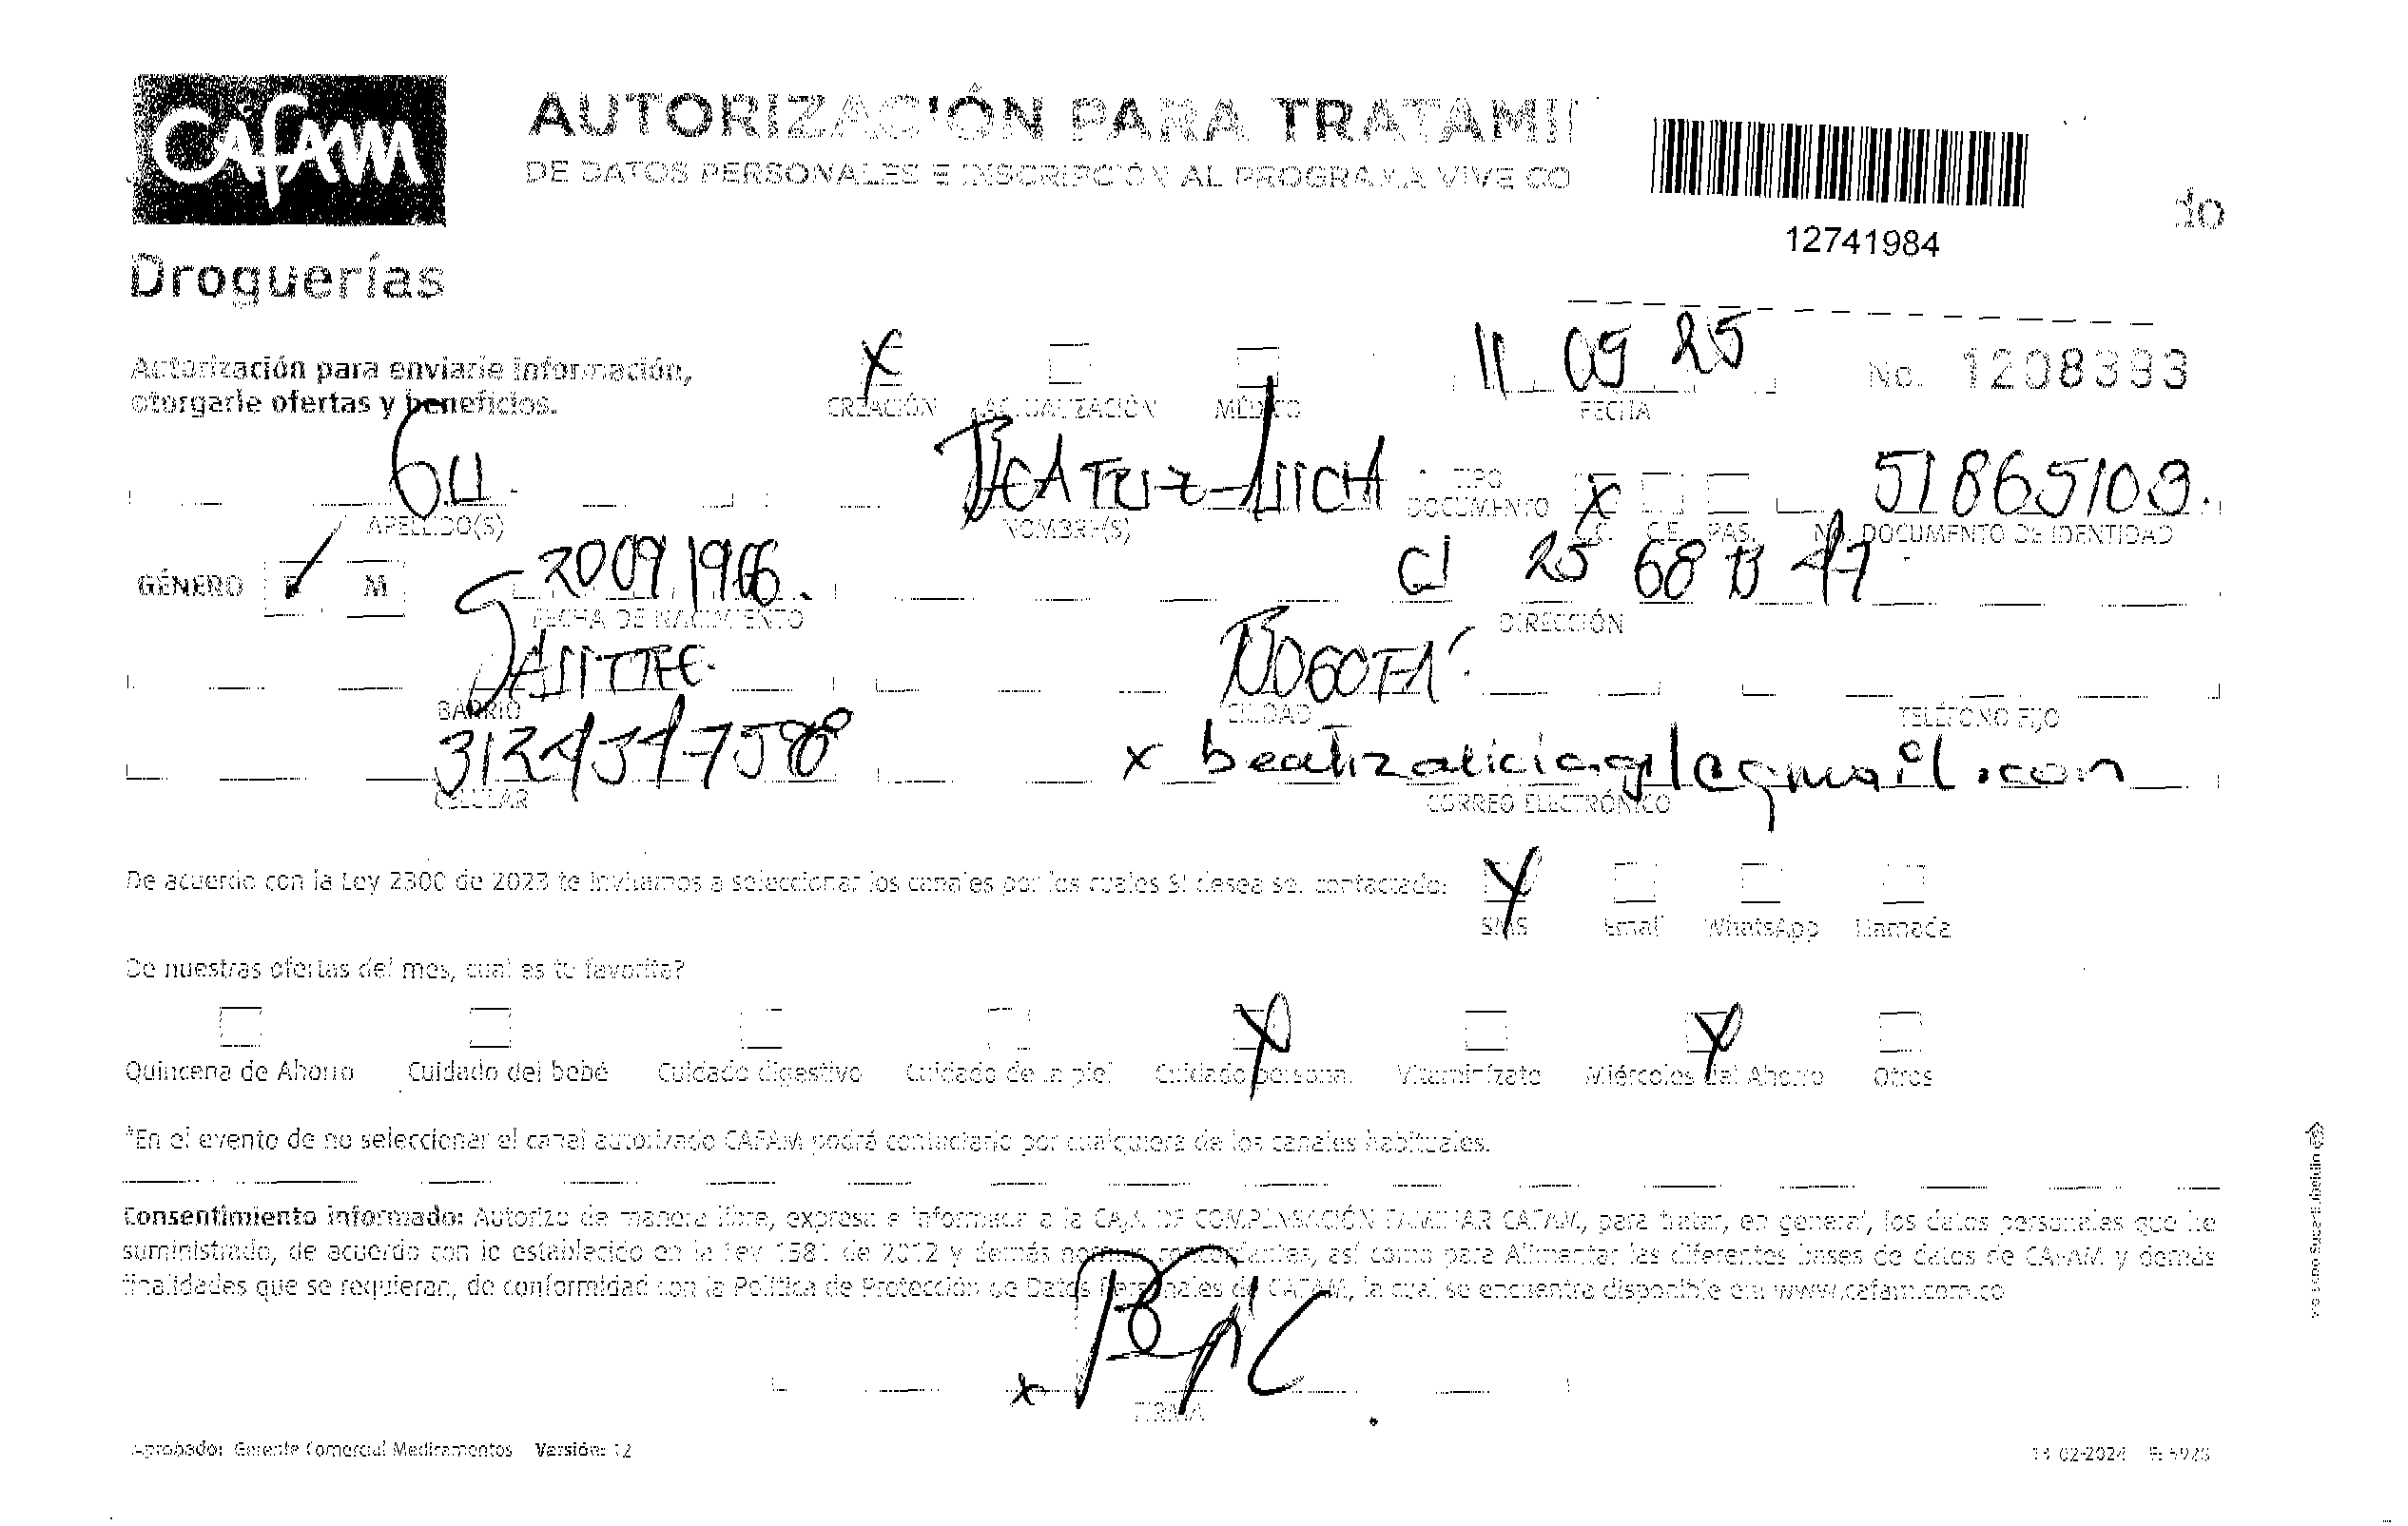 Cafam
Droguerías
AUTORIZACIÓN PARA TRATAMI
DE DATOS PERSONALES E INSCRIPCIÓN AL PROGRAMA VIVE CO
do
12741984
Autorización para enviarle información,
otorgarle ofertas y beneficios.
X
CREACIÓN ACTUALIZACIÓN MÉDICO
11 09 25
FECHA
No. 1208393
Gil
APELLIDO(S)
BEATRIZ ALICIA
NOMBRE(S)
TIPO
DOCUMENTO
X
C.C. C.E. PAS.
51865103.
No. DOCUMENTO DE IDENTIDAD
GÉNERO F M
20091966.
FECHA DE NACIMIENTO
Cl 25 68 B 47
DIRECCIÓN
BARRIO
BOGOTA
CIUDAD
TELÉFONO FIJO
CELULAR
x beatrizaliciagil@gmail.com
CORREO ELECTRÓNICO
De acuerdo con la Ley 2300 de 2023 te invitamos a seleccionar los canales por los cuales SI desea ser contactado:
X
SMS Email WhatsApp Llamada
De nuestras ofertas del mes, cual es tu favorita?
X X
Quincena de Ahorro Cuidado del bebé Cuidado digestivo Cuidado de la piel Cuidado personal Vitaminízate Miércoles del Ahorro Otros
*En el evento de no seleccionar el canal autorizado CAFAM podrá contactarlo por cualquiera de los canales habituales.
Consentimiento informado: Autorizo de manera libre, expresa e informada a la CAJA DE COMPENSACIÓN FAMILIAR CAFAM, para tratar, en general, los datos personales que he
suministrado, de acuerdo con lo establecido en la Ley 1581 de 2012 y demás normas concordantes, así como para Alimentar las diferentes bases de datos de CAFAM y demás
finalidades que se requieran, de conformidad con la Política de Protección de Datos Personales de CAFAM, la cual se encuentra disponible en: www.cafam.com.co
x
FIRMA
Aprobado: Gerente Comercial Medicamentos Versión: 12